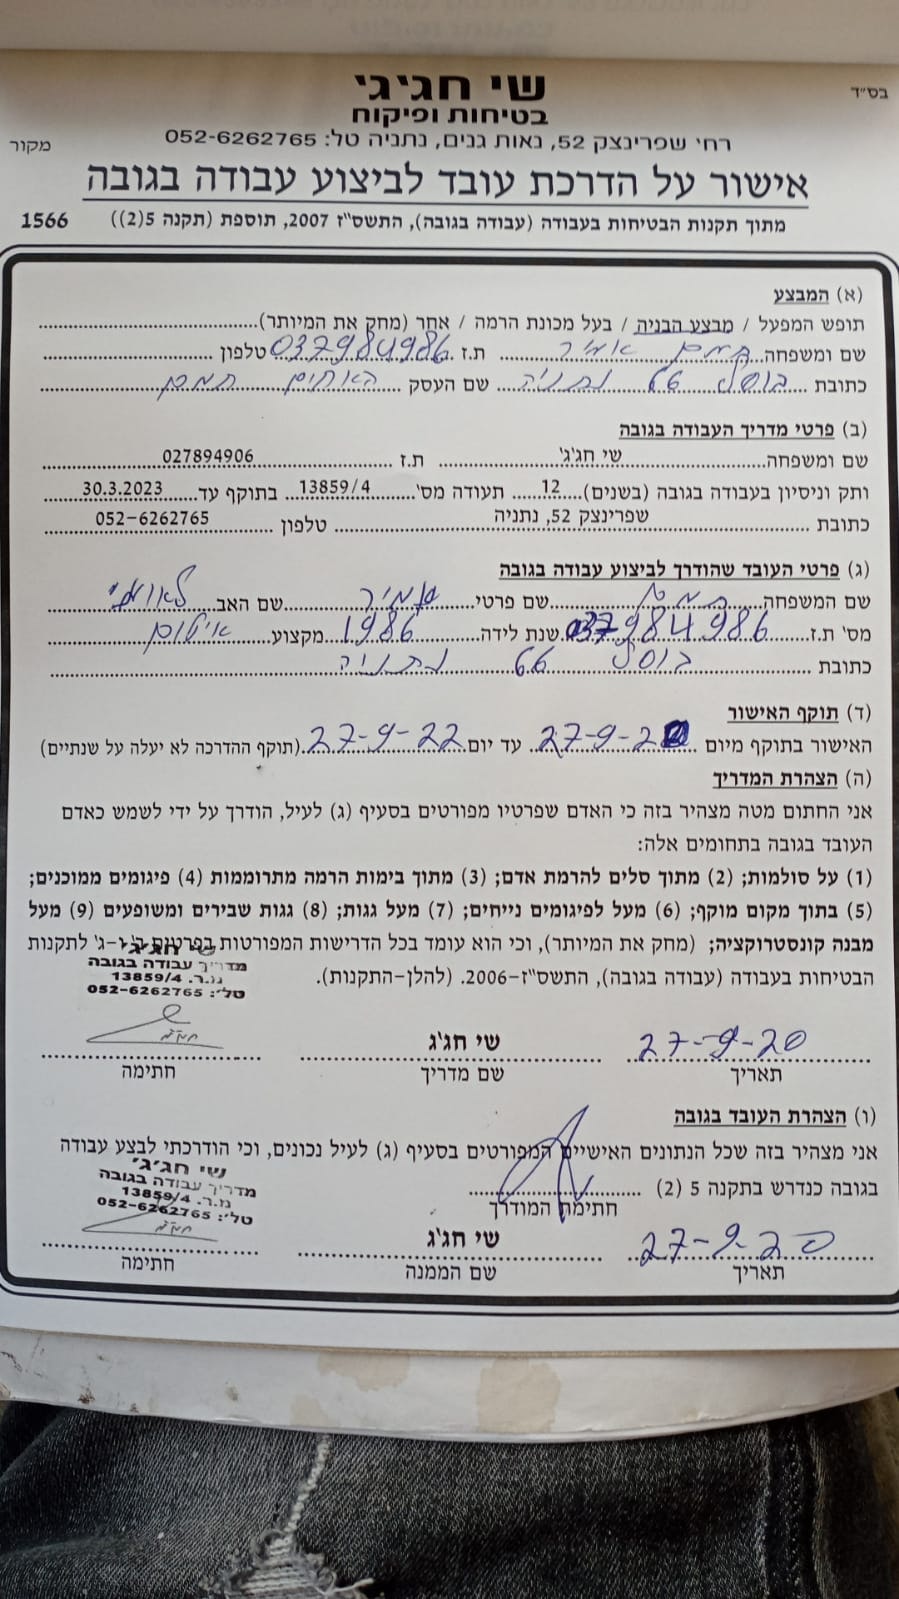 בס״ד
שי חגיגי
בטיחות ופיקוח
רח׳ שפרינצק 52, נאות גנים, נתניה טל: 052-6262765
מקור
אישור על הדרכת עובד לביצוע עבודה בגובה
מתוך תקנות הבטיחות בעבודה (עבודה בגובה), התשס״ז 2007, תוספת (תקנה 5(2)) 1566
(א) המבצע
תופש המפעל / מבצע הבניה / בעל מכונת הרמה / אחר (מחק את המיותר)
שם ומשפחה אמיר ת.ז 037984986 טלפון
כתובת 66 נתניה שם העסק האחים
(ב) פרטי מדריך העבודה בגובה
שם ומשפחה שי חג'ג' ת.ז 027894906
ותק וניסיון בעבודה בגובה (בשנים) 12 תעודה מס׳ 13859/4 בתוקף עד 30.3.2023
כתובת שפרינצק 52, נתניה טלפון 052-6262765
(ג) פרטי העובד שהודרך לביצוע עבודה בגובה
שם המשפחה שם פרטי אמיר שם האב
מס׳ ת.ז 037984986 שנת לידה 1986 מקצוע איטום
כתובת 66 נתניה
(ד) תוקף האישור
האישור בתוקף מיום 27-9-20 עד יום 27-9-22 (תוקף ההדרכה לא יעלה על שנתיים)
(ה) הצהרת המדריך
אני החתום מטה מצהיר בזה כי האדם שפרטיו מפורטים בסעיף (ג) לעיל, הודרך על ידי לשמש כאדם
העובד בגובה בתחומים אלה:
(1) על סולמות; (2) מתוך סלים להרמת אדם; (3) מתוך בימות הרמה מתרוממות (4) פיגומים ממוכנים;
(5) בתוך מקום מוקף; (6) מעל לפיגומים נייחים; (7) מעל גגות; (8) גגות שבירים ומשופעים (9) מעל
מבנה קונסטרוקציה; (מחק את המיותר), וכי הוא עומד בכל הדרישות המפורטות בפרטים ב׳ ו-ג׳ לתקנות
הבטיחות בעבודה (עבודה בגובה), התשס״ז-2006. (להלן-התקנות).
שי חג'ג'
מדריך עבודה בגובה
מ.ר. 13859/4
טל׳: 052-6262765
27-9-20 שי חג'ג
תאריך שם מדריך חתימה
(ו) הצהרת העובד בגובה
אני מצהיר בזה שכל הנתונים האישיים המפורטים בסעיף (ג) לעיל נכונים, וכי הודרכתי לבצע עבודה
בגובה כנדרש בתקנה 5 (2)
חתימת המודרך
שי חג'ג'
מדריך עבודה בגובה
מ.ר. 13859/4
טל׳: 052-6262765
27-9-20 שי חג'ג
תאריך שם הממנה חתימה